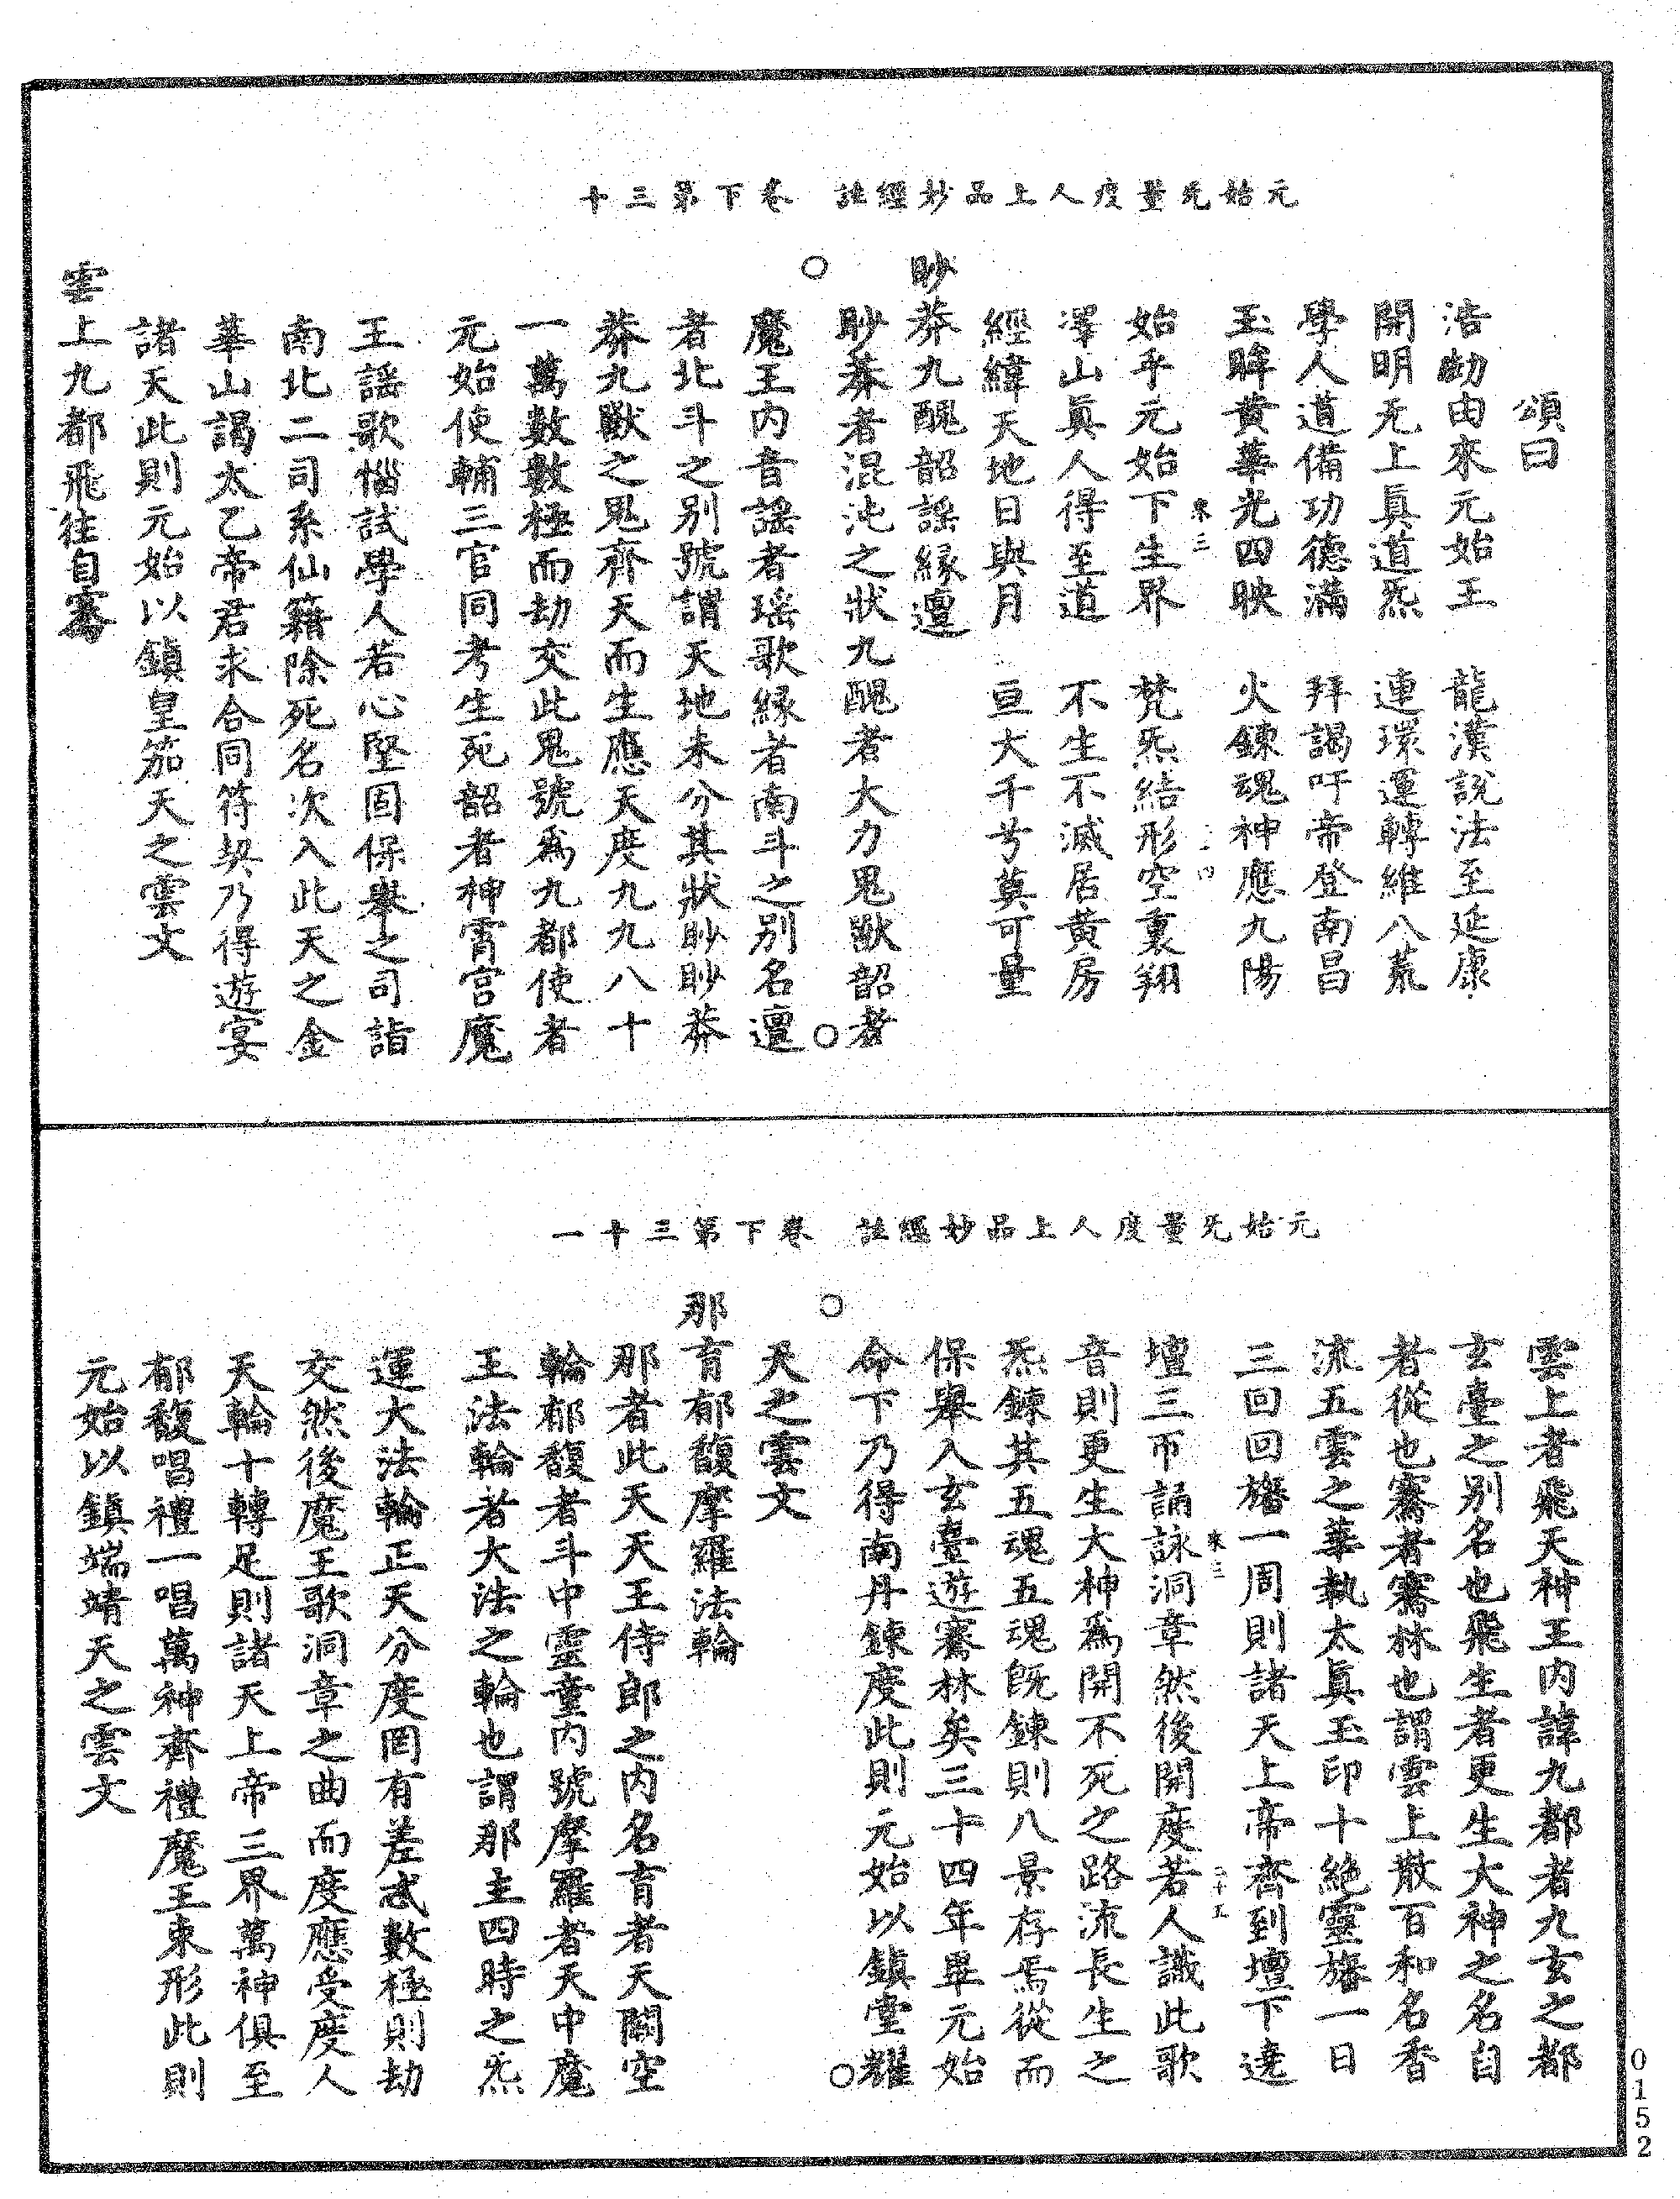 元始旡量度人上品妙經註　卷下第三十
頌曰
浩劫由來元始王　龍漢說法至延康
開明无上眞道炁　連環運轉維八荒
學人道備功德滿　拜謁吁帝登南昌
玉眸黃華光四映　火鍊魂神應九陽
來三　四
始乎元始下生界　梵炁結形空裏翔
澤山眞人得至道　不生不滅居黃房
經緯天地日與月　亘大千兮莫可量
眇莽九醜韶謠緣邅
眇莽者混沌之狀九醜者大力鬼獸韶者
魔王內音謠者瑶歌緣者南斗之別名邅
者北斗之別號謂天地未分其狀眇眇莽
莽九獸之鬼齊天而生應天度九九八十
一萬數數極而劫交此鬼號爲九都使者
元始使輔三官同考生死韶者神霄宫魔
王謠歌惱試學人若心堅固保舉之司詣
南北二司系仙籍除死名次入此天之金
華山謁太乙帝君求合同符契乃得遊宴
諸天此則元始以鎮皇笳天之雲文
雲上九都飛往自騫
元始旡量度人上品妙經註　卷下第三十一
雲上者飛天神王內諱九都者九玄之都
玄臺之別名也飛生者更生大神之名自
者從也騫者騫林也謂雲上散百和名香
流五雲之華執太眞玉印十絕靈旛一日
三回回旛一周則諸天上帝齊到壇下遶
來三
壇三帀誦詠洞章然後開度若人識此歌
音則更生大神爲開不死之路流長生之
炁鍊其五魂五魂旣鍊則八景存焉從而
保舉入玄臺遊騫林矣三十四年畢元始
命下乃得南丹鍊度此則元始以鎮堂耀
天之雲文
那育郁馥摩羅法輪
那者此天天王侍郎之內名育者天關空
輪郁馥者斗中靈童內號摩羅者天中魔
王法輪者大法之輪也謂那主四時之炁
運大法輪正天分度罔有差忒數極則劫
交然後魔王歌洞章之曲而度應受度人
天輪十轉足則諸天上帝三界萬神俱至
郁馥唱禮一唱萬神齊禮魔王束形此則
元始以鎮端靖天之雲文
0152